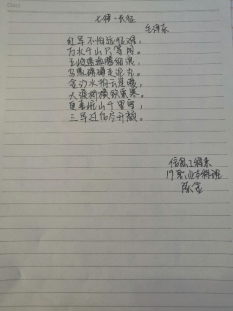 七律·长征
毛泽东
红军不怕远征难,
万水千山只等闲。
五岭逶迤腾细浪,
乌蒙磅礴走泥丸。
金沙水拍云崖暖,
大渡桥横铁索寒。
更喜岷山千里雪,
三军过后尽开颜。
信息工程系